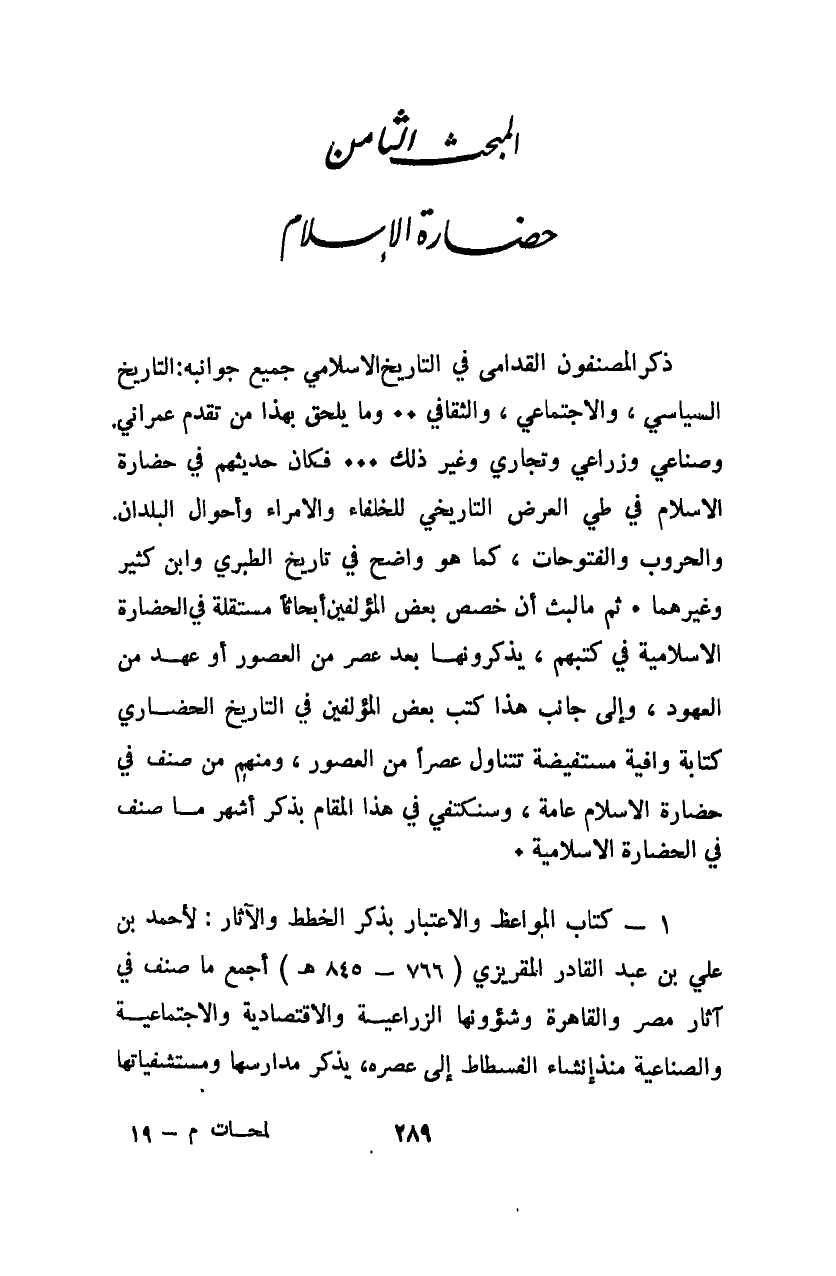 المبحث الثامن
حضارة الإسلام
ذكر المصنفون القدامى في التاريخ الاسلامي جميع جوانبه: التاريخ
السياسي ، والاجتماعي ، والثقافي ٠٠ وما يلحق بهذا من تقدم عمراني.
وصناعي وزراعي وتجاري وغير ذلك ٠٠٠ فكان حديثهم في حضارة
الاسلام في طي العرض التاريخي للخلفاء والامراء وأحوال البلدان.
والحروب والفتوحات ، كما هو واضح في تاريخ الطبري وابن كثير
وغيرهما ٠ ثم مالبث أن خصص بعض المؤلفين أبحاثاً مستقلة في الحضارة
الاسلامية في كتبهم ، يذكرونهــا بعد عصر من العصور أو عهــد من
العهود ، وإلى جانب هذا كتب بعض المؤلفين في التاريخ الحضــاري
كتابة وافية مستفيضة تتناول عصراً من العصور ، ومنهم من صنف في
حضارة الاسلام عامة ، وسنكتفي في هذا المقام بذكر أشهر مــا صنف
في الحضارة الاسلامية ٠
١ ــ كتاب المواعظ والاعتبار بذكر الخطط والآثار : لأحمد بن
علي بن عبد القادر المقريزي ( ٧٦٦ ــ ٨٤٥ هـ ) أجمع ما صنف في
آثار مصر والقاهرة وشؤونها الزراعيــة والاقتصادية والاجتماعيــة
والصناعية منذ إنشاء الفسطاط إلى عصره، يذكر مدارسها ومستشفياتها
٢٨٩
لمحــات م ــ ١٩